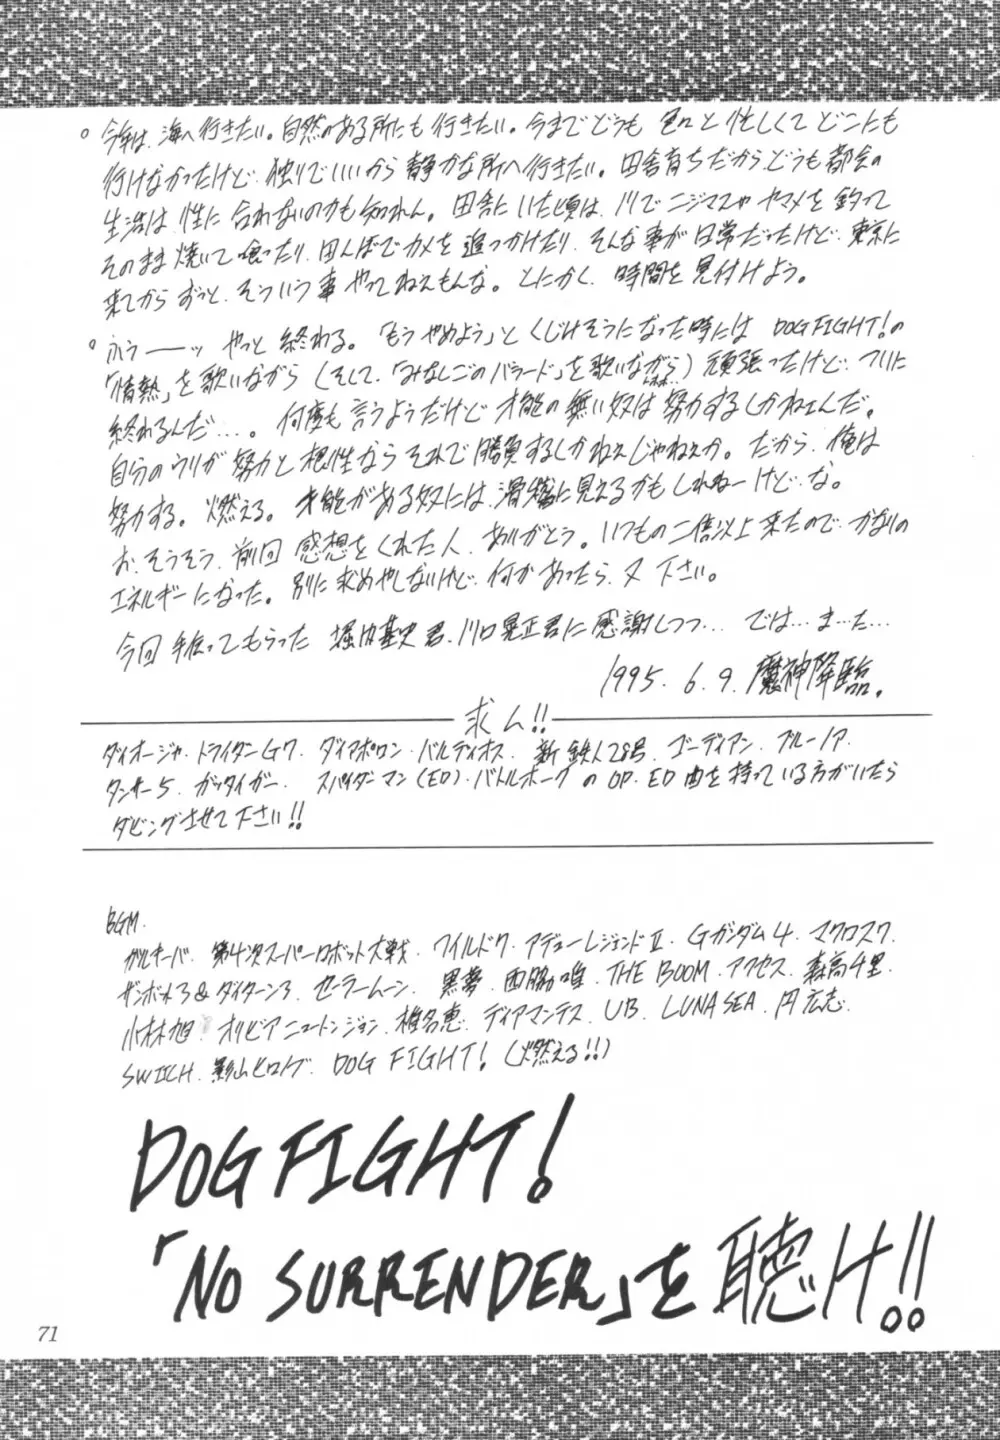 ○今年は、海へ行きたい。自然のある所にも行きたい。今までどうも色々と忙しくてどこにも
行けなかったけど、独りでいいから静かな所へ行きたい。田舎育ちだから、どうも都会の
生活は性に合わないのかも知れん。田舎にいた頃は、川でニジマスやヤマメを釣って
そのまま焼いて喰ったり、田んぼでカメを追っかけたり、そんな事が日常だったけど、東京に
来てからずっと、そういう事やってねえもんな。とにかく、時間を見付けよう。
○ふうーーッ やっと終われる。「もうやめよう」とくじけそうになった時には DOG FIGHT!の
「情熱」を歌いながら(そして、「みなしごのバラード」を歌いながら)頑張ったけど、ついに
終われるんだ…。何度も言うようだけど才能の無い奴は努力するしかねェんだ。
自分のウリが努力と根性ならそれで勝負するしかねぇじゃねぇか。だから、俺は
努力する。燃える。才能がある奴には、滑稽に見えるかもしれねーけど…な。
お、そうそう、前回感想をくれた人、ありがとう。いつもの二倍以上来たので、かなりの
エネルギーになった。別に求めやしないけど、何かあったら、又下さい。
今回手伝ってもらった 堀内基史君、川口晃正君に感謝しつつ… では…ま…た…
1995.6.9.魔神降臨.
求ム!!
ダイオージャ.トライダーG7.ダイアポロン.バルディオス.新鉄人28号.ゴーディアン.ブルーノア.
タンサー5.ガッタイガー.スパイダーマン(ED).バトルホークのOP.ED曲を持っている方がいたら
ダビングさせて下さい!!
BGM.
ガルキーバ.第4次スーパーロボット大戦.ワイルド7.アデューレジェンドⅡ.Gガンダム4.マクロス7.
ザンボット3&ダイターン3.セーラームーン.黒夢.西脇唯.THE BOOM.アクセス.森高千里.
小林旭.オリビアニュートンジョン.椎名恵.ディアマンテス.UB.LUNA SEA.円広志.
SWITCH.影山ヒロノブ.DOG FIGHT!(燃える!!)
DOG FIGHT!
「NO SURRENDER」を聴け!!
71